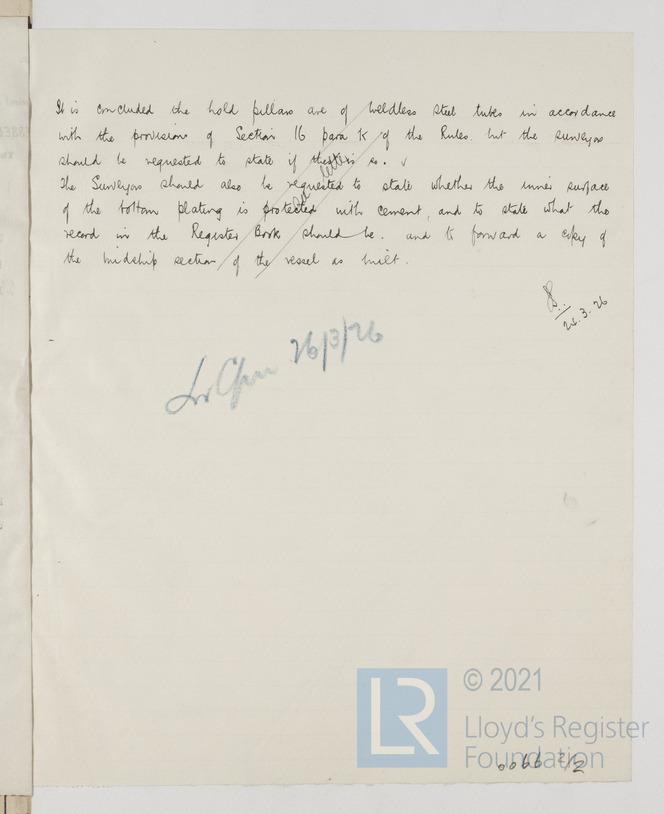 It is concluded the hold pillars are of weldless steel tubes in accordance
with the provisions of Section 16 para K of the Rules but the surveyors
should be requested to state if this is so.
The Surveyors should also be requested to state whether the inner surface
of the bottom plating is protected with cement, and to state what the
record in the Register Book should be. and to forward a copy of
the midship section of the vessel as built.
letter
26/3/26
.3.26
LR
© 2021
Lloyd's Register
Foundation
0066 2/2